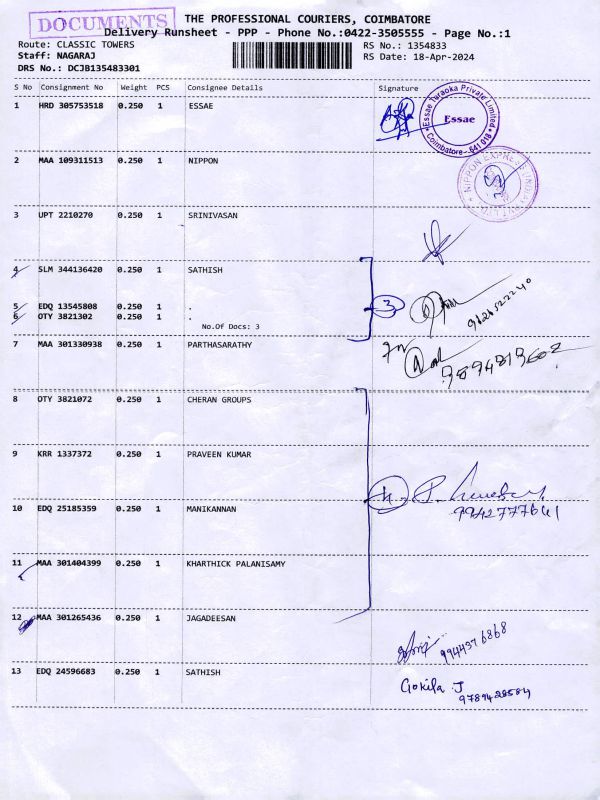 DOCUMENTS
THE PROFESSIONAL COURIERS, COIMBATORE
Delivery Runsheet - PPP - Phone No.:0422-3505555 - Page No.:1
Route: CLASSIC TOWERS
RS No.: 1354833
Staff: NAGARAJ
RS Date: 18-Apr-2024
DRS No.: DCJB135483301
S No Consignment No Weight PCS Consignee Details Signature
1 HRD 305753518 0.250 1 ESSAE
Essae Teraoka Private Limited
Essae
Coimbatore - 641 018
2 MAA 109311513 0.250 1 NIPPON
NIPPON EXPRESS
3 UPT 2210270 0.250 1 SRINIVASAN
4 SLM 344136420 0.250 1 SATHISH
5 EDQ 13545808 0.250 1 .
3
6 OTY 3821302 0.250 1 .
No.Of Docs: 3
7 MAA 301330938 0.250 1 PARTHASARATHY
8 OTY 3821072 0.250 1 CHERAN GROUPS
9 KRR 1337372 0.250 1 PRAVEEN KUMAR
10 EDQ 25185359 0.250 1 MANIKANNAN
9942777641
11 MAA 301404399 0.250 1 KHARTHICK PALANISAMY
12 MAA 301265436 0.250 1 JAGADEESAN
9944376868
13 EDQ 24596683 0.250 1 SATHISH
Gokila J